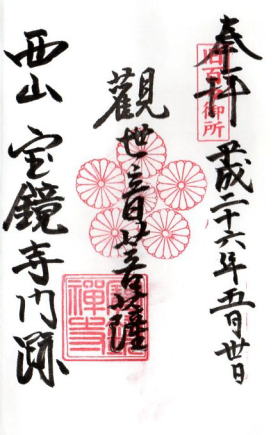 奉拝 平成二十六年五月丗日
旧百々御所
觀世音菩薩
禪寺
西山 宝鏡寺門跡